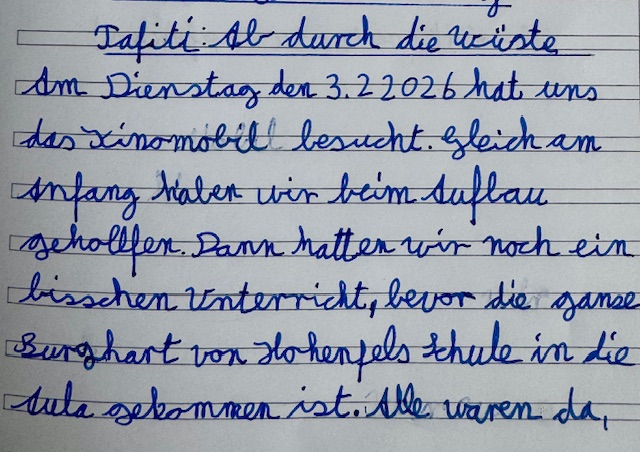 Tafiti: Ab durch die Wüste
Am Dienstag den 3.2 2026 hat uns
das Kinomobill besucht. Gleich am
Anfang haben wir beim Aufbau
gehollfen. Dann hatten wir noch ein
bisschen Unterricht, bevor die ganse
Burghart von Hohenfels Schule in die
Aula gekommen ist. Alle waren da,